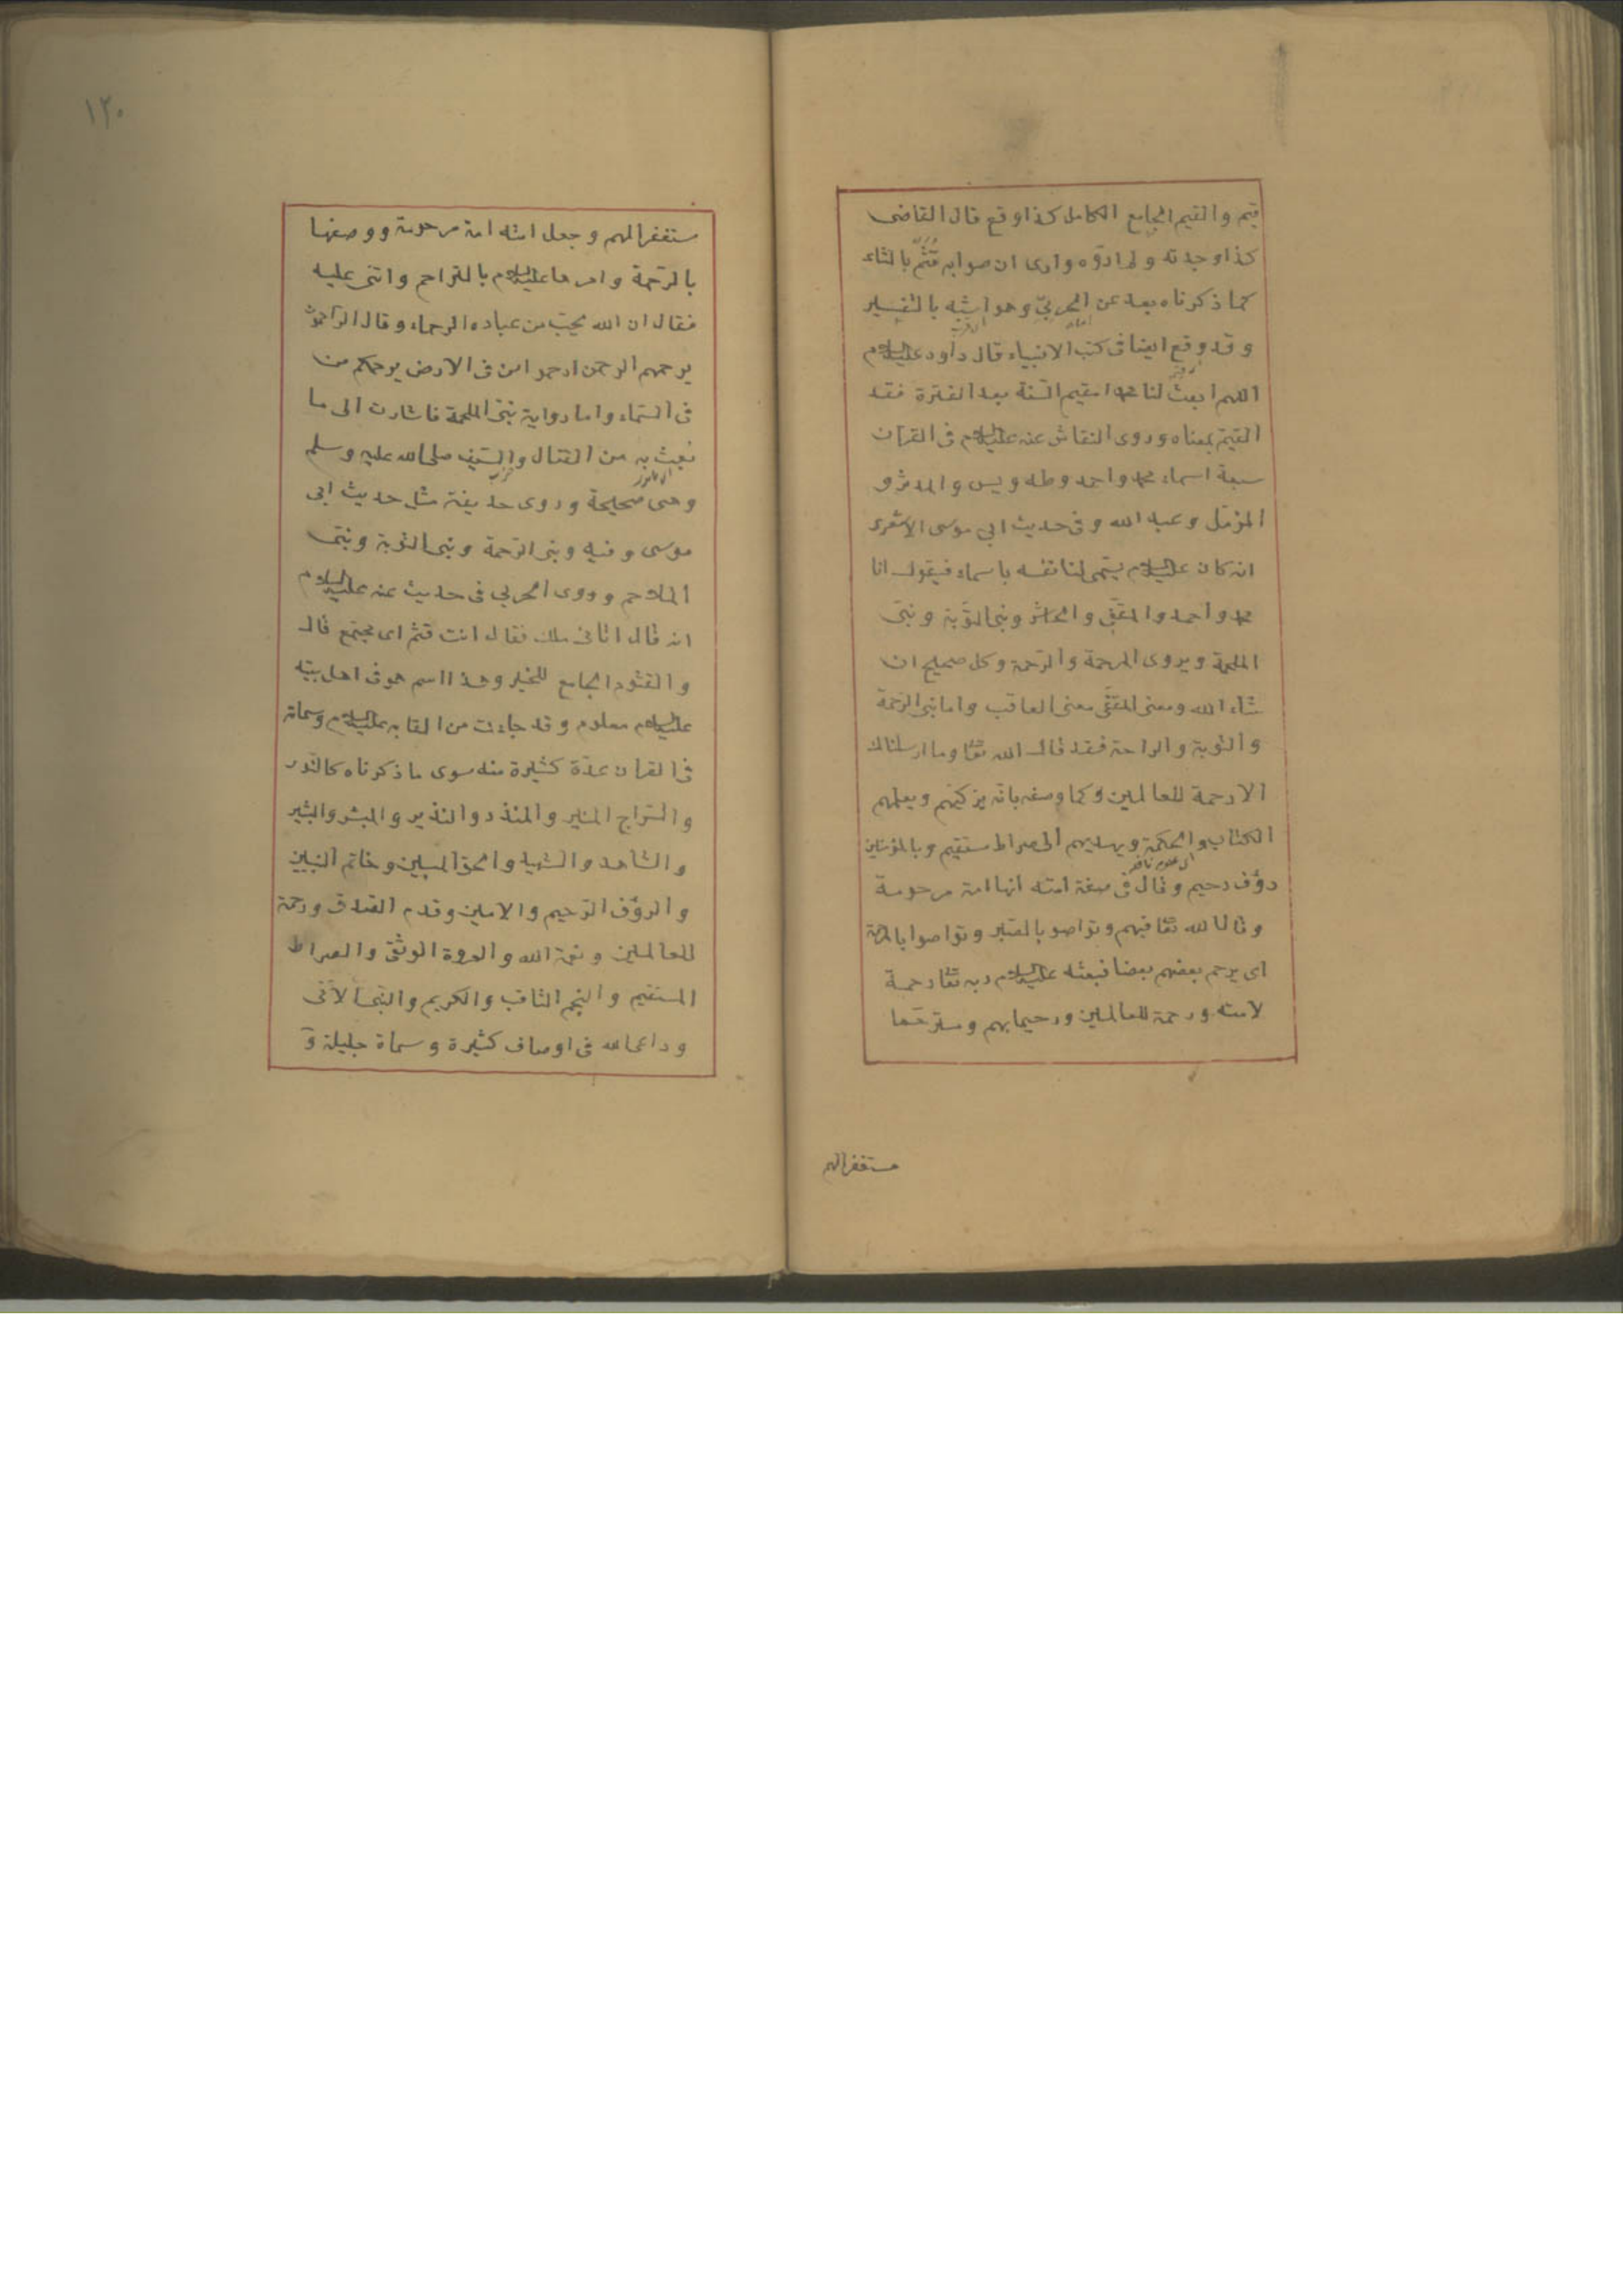 قيم والقيم الجامع الكامل كذا وقع قال القاضى
كذا وجدته ولم اروه وارى ان صوابه قُثَمُ بالثاء
كما ذكرناه بعد عن الحربىّ وهو اشبه بالتفسير
وقد وقع ايضا فى كتب الانبياء قال داود عليه السلام
اللهم ابعث لنا محمدا مقيم السّنة بعد الفترة فقد
القيّم بمعناه وروى النقاش عنه عليه السلام فى القران
سبعة اسماء محمد واحمد وطه ويس والمدثر و
المزمّل وعبد الله وفى حديث ابى موسى الاشعرى
انه كان عليه السلام يسّمى لنا نفسه باسماء فيقول انا
محمد واحمد والمقفّى والحاشر ونبى التّوبة ونبىّ
الملحمة ويروى المرحمة والرّحمة وكل صحيح ان
شاء الله ومعنى المقفّى معنى العاقب واما نبى الرّحمة
والتوبة والراحة فقد قال الله تعا وما ارسلناك
الا رحمة للعالمين وكما وصفه بانّه يزكيهم ويعلمهم
الكتاب والحكمة ويهديهم الى صراط مستقيم وبالمؤمنين
رؤف رحيم وقال فى صفة امته انها امة مرحومة
وقال الله تعا فيهم وتواصو بالصّبر وتواصوا بالمرحمة
اى يرحم بعضهم بعضا فبعثه عليه السلام ربه تعا رحمة
لامته ورحمة للعالمين ورحيما بهم ومترحّما
مستغفرا لهم
١٢٠
مستغفرا لهم وجعل امته امة مرحومة ووصفها
بالرّحمة وامرها عليه السلام بالتراحم واثنى عليه
فقال ان الله يحبّ من عباده الرحماء وقال الرّاحمون
يرحمهم الرحمن ارحموا من فى الارض يرحمكم من
فى السّماء واما رواية نبىّ الملحمة فاشارت الى ما
بعث به من القتال والسّيف صلى الله عليه وسلم
وهى صحيحة وروى حذيفة مثل حديث ابى
موسى وفيه ونبى الرّحمة ونبى التوبة ونبىّ
الملاحم وروى الحربى فى حديث عنه عليه السلام
انه قال اتانى ملك فقال انت قثم اى مجتمع قال
والقثوم الجامع للخير وهذا اسم هو فى اهل بيته
عليه السلام معلوم وقد جاءت من القابه عليه السلام وسماته
فى القران عدّة كثيرة منه سوى ما ذكرناه كالنّور
والسّراج المنير والمنذر والنذير والمبشر والبشير
والشاهد والشهيد والحق المبين وخاتم النبيين
والرؤف الرّحيم والامين وقدم الصّدق ورحمة
للعالمين ونعمة الله والعروة الوثقى والصراط
المستقيم والنجم الثاقب والكريم والنّبى الامّى
وداعى الله فى اوصاف كثيرة وسماة جليلة و